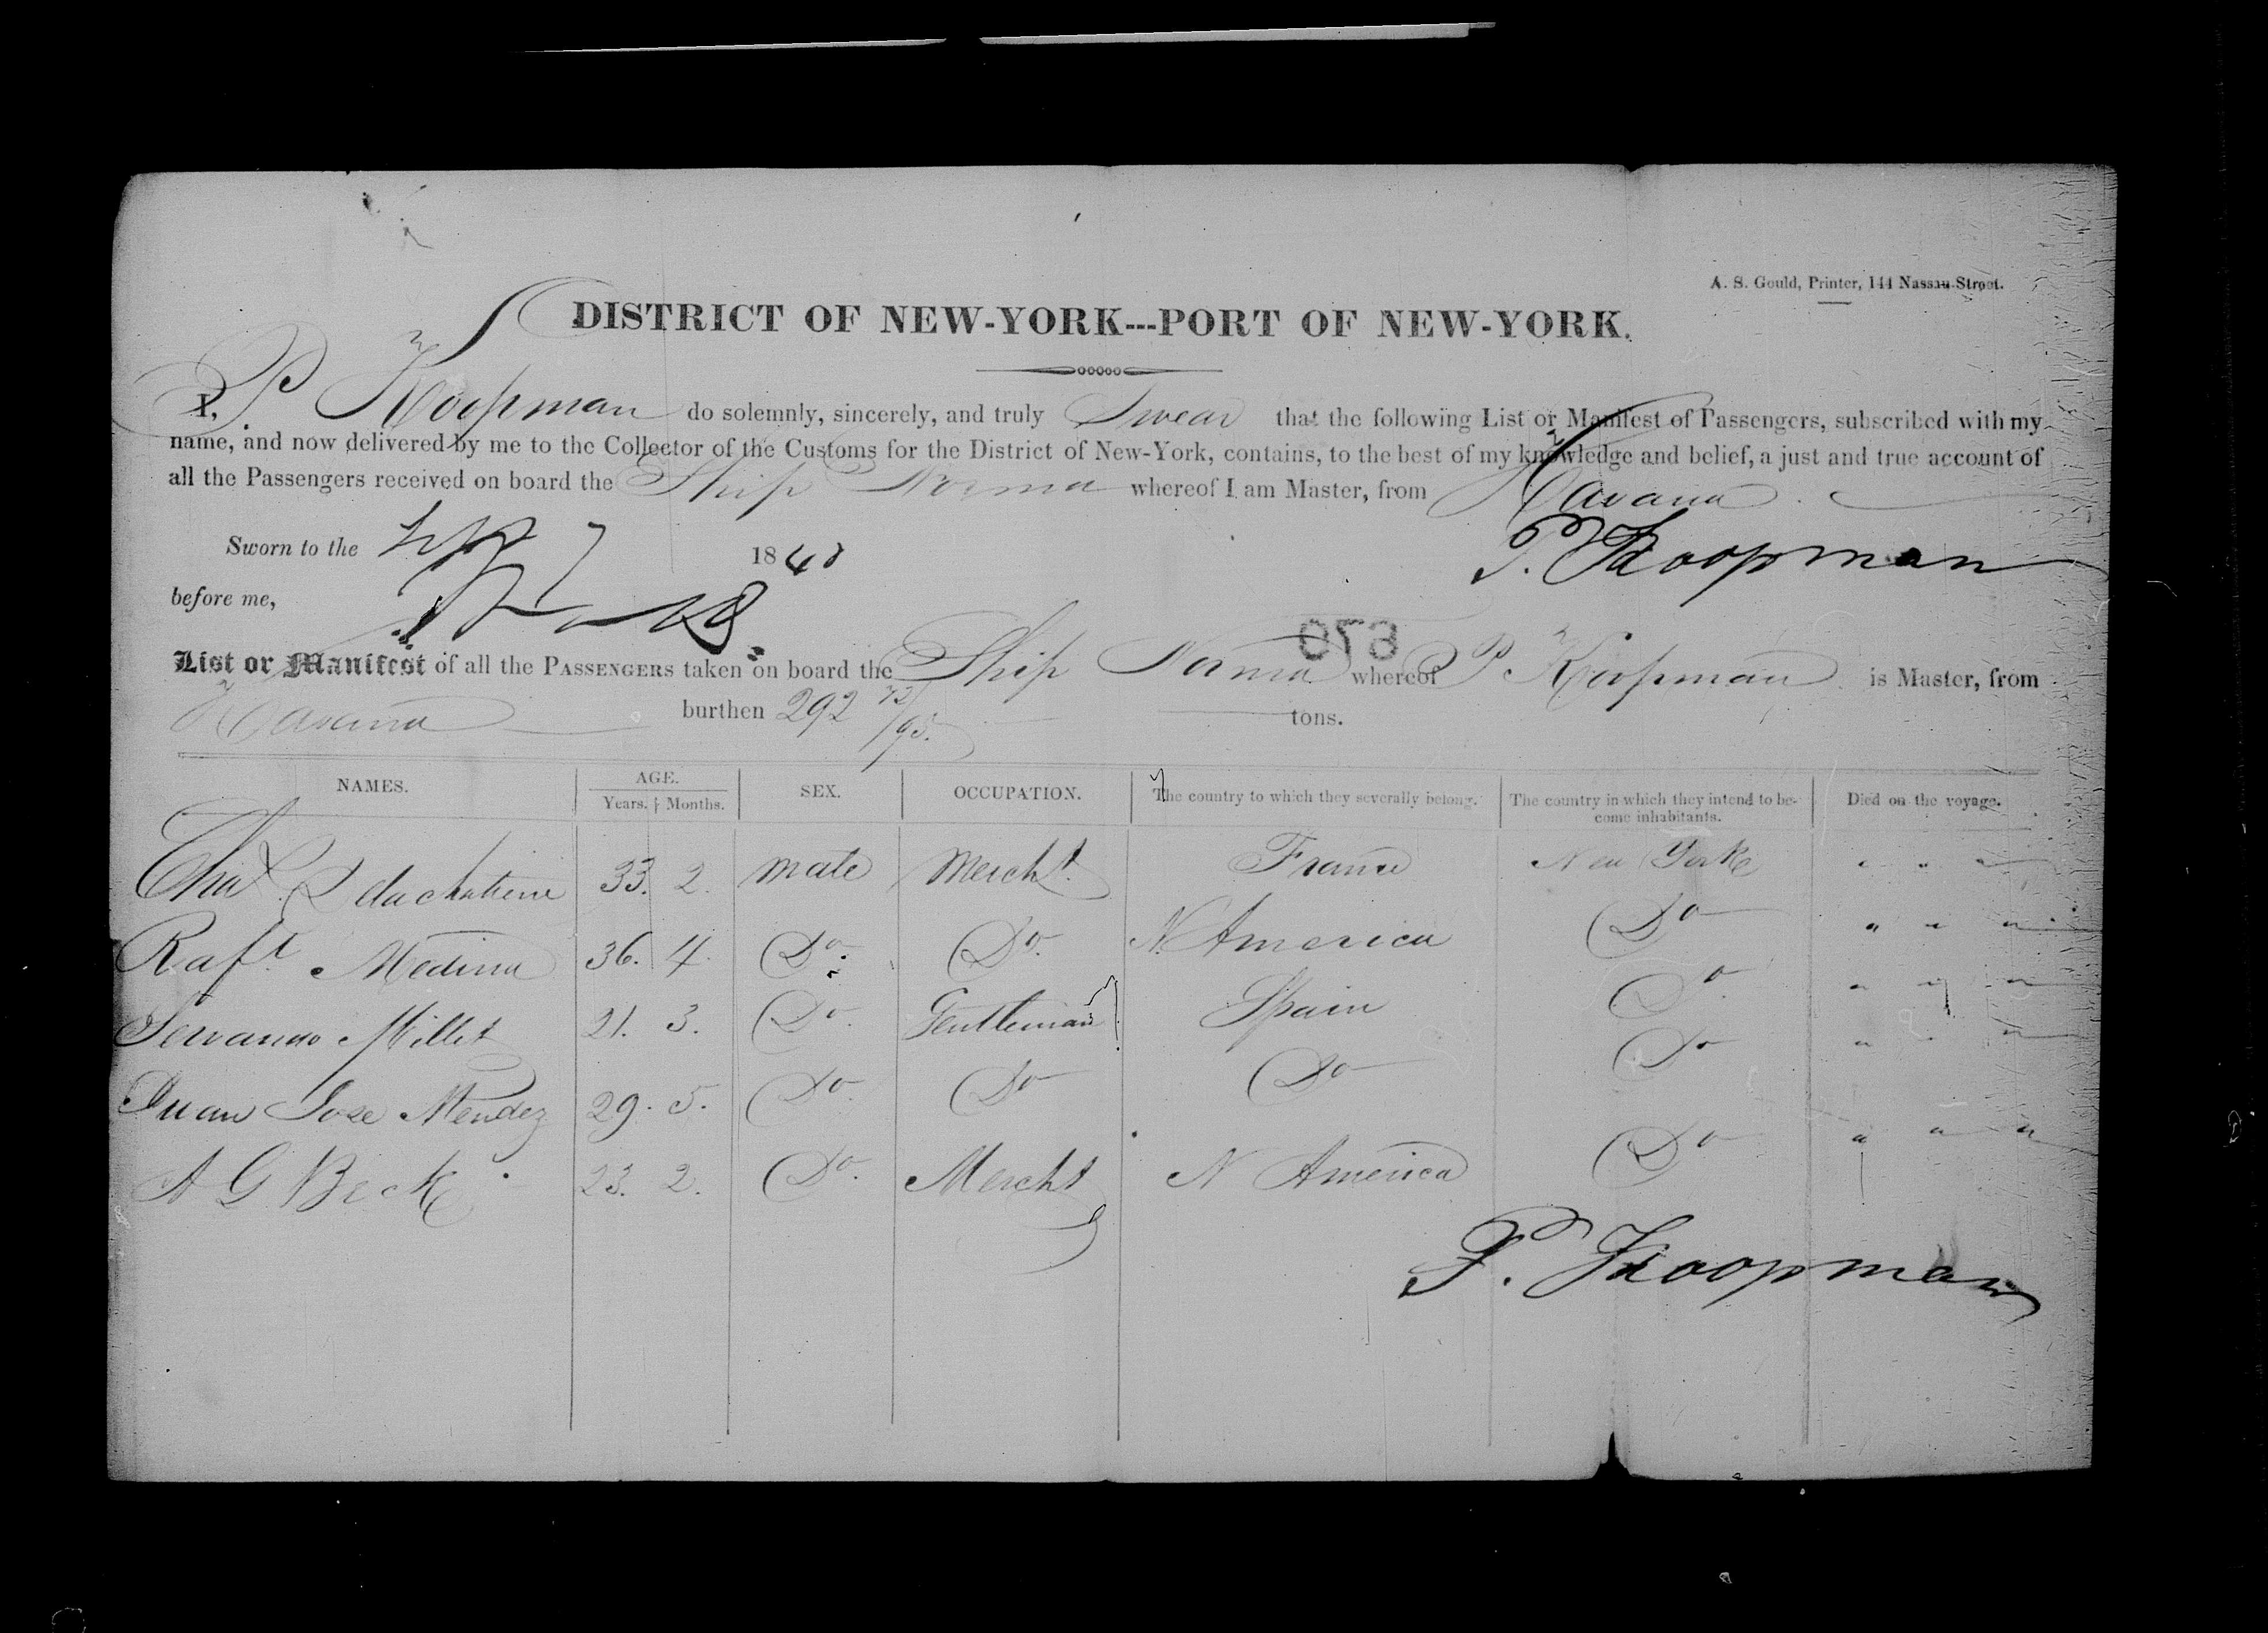 A. S. Gould, Printer, 144 Nassau-Street.
DISTRICT OF NEW-YORK---PORT OF NEW-YORK.
I, P Koopman do solemnly, sincerely, and truly Swear that the following List or Manifest of Passengers, subscribed with my
name, and now delivered by me to the Collector of the Customs for the District of New-York, contains, to the best of my knowledge and belief, a just and true account of
all the Passengers received on board the Ship Norma whereof I am Master, from Havana
Sworn to the 7 184
P. Koopman
before me,
List or Manifest of all the PASSENGERS taken on board the Ship Norma whereof P Koopman is Master, from
Havana burthen 292 72/95 tons.
NAMES. AGE. Years. Months. SEX. OCCUPATION. The country to which they severally belong. The country in which they intend to become inhabitants. Died on the voyage.
Chas 33. 2. male Mercht. France New York " " "
Rafl. Medina 36. 4. Do. Do. N. America Do " " "
Servando Millet 21. 3. Do. Gentleman Spain Do. " " "
Juan Jose Mendez 29. 5. Do. Do Do Do " " "
A G Beck 23. 2. Do. Mercht N America Do " " "
P. Koopman